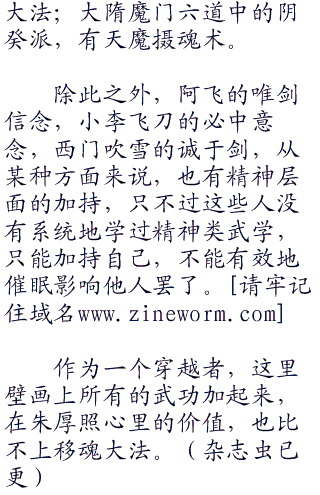 大法；大隋魔门六道中的阴
癸派，有天魔摄魂术。
除此之外，阿飞的唯剑
信念，小李飞刀的必中意
念，西门吹雪的诚于剑，从
某种方面来说，也有精神层
面的加持，只不过这些人没
有系统地学过精神类武学，
只能加持自己，不能有效地
催眠影响他人罢了。[请牢记
住域名www.zineworm.com]
作为一个穿越者，这里
壁画上所有的武功加起来，
在朱厚照心里的价值，也比
不上移魂大法。（杂志虫已
更）